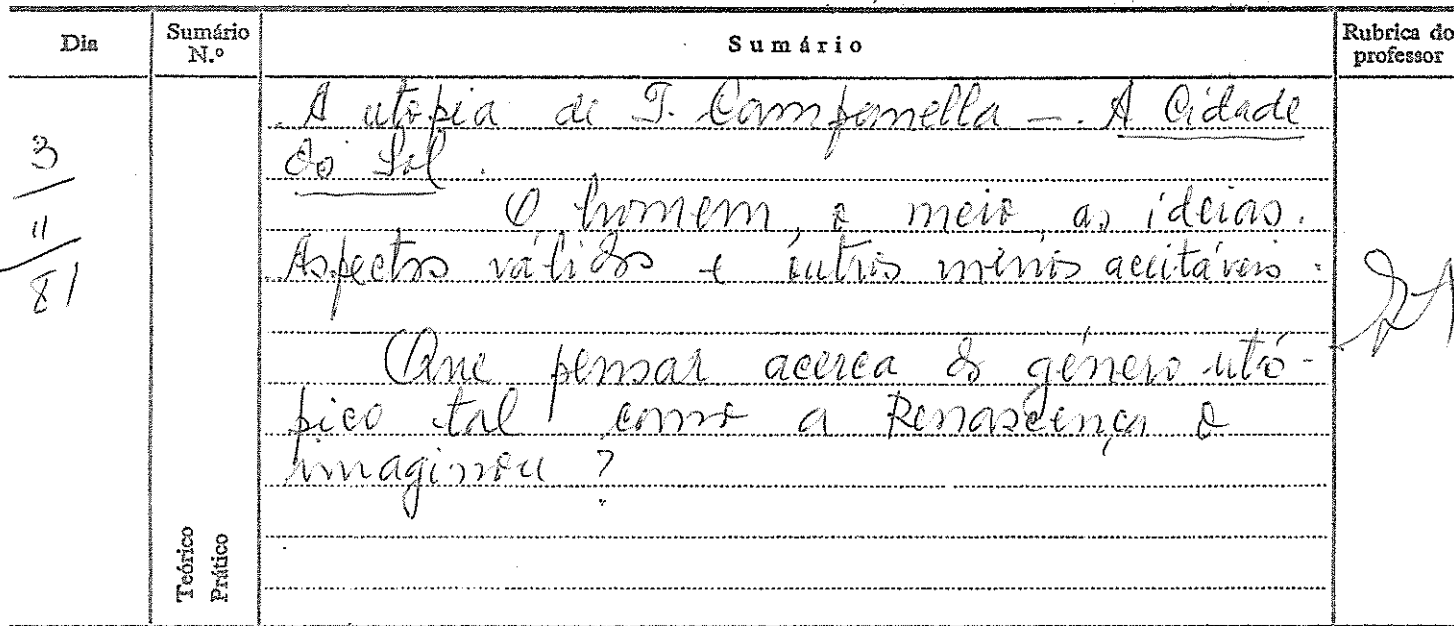 Dia
Sumário N.º
Sumário
Rubrica do professor
3
11
81
A utopia de T. Campanella - . A Cidade
do Sol .
O homem, o meio, as ideias.
Aspectos válidos e outros menos aceitáveis.
Que pensar acerca do género utó-
pico tal como a Renascença o
imaginou ?
Teórico
Prático